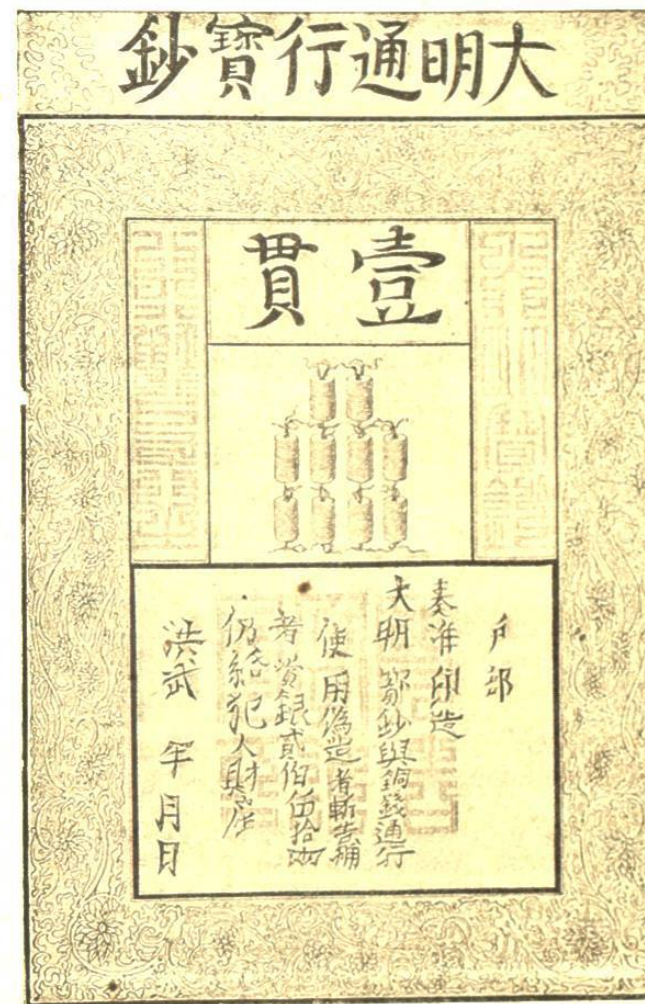 大明通行寶鈔
壹貫
戶部
奏准印造
大明寶鈔與銅錢通行
使用偽造者斬告捕
者賞銀貳佰伍拾兩
仍給犯人財產
洪武 年月日